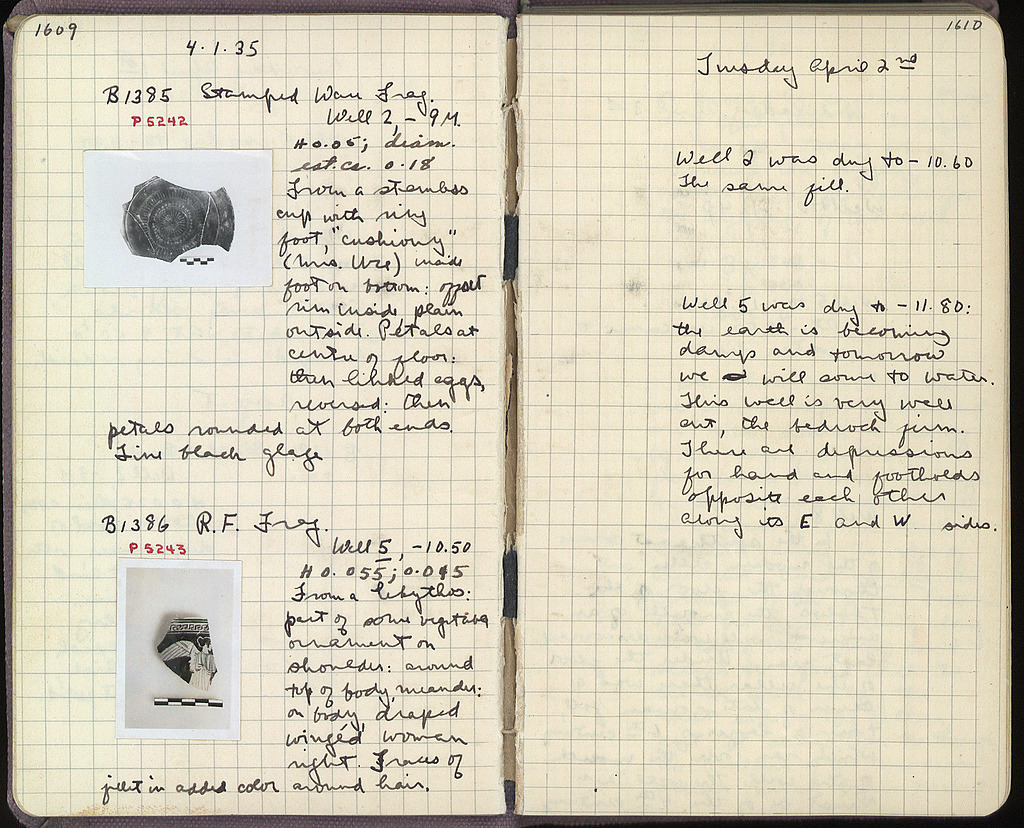 1609
4·1·35
B1385 Stamped Ware Frag.
P 5242
Well 2, -9M.
H 0.05; diam.
est. ca. 0.18
From a stemless
cup with ring
foot, "cushiony"
(Mrs. Ure) inside
foot on bottom: offset
rim inside, plain
outside. Petals at
centre of floor:
then linked eggs,
reversed: then
petals rounded at both ends.
Fine black glaze
B1386 R.F. Frag.
P 5243
Well 5, -10.50
H 0.055; 0.045
From a lekythos:
part of some vegetable
ornament on
shoulder: around
top of body, meander:
on body, draped
winged woman
right. Traces of
fillet in added color around hair.
1610
Tuesday April 2nd
Well 2 was dug to -10.60
The same fill.
Well 5 was dug to -11.80:
the earth is becoming
damp and tomorrow
we will come to water.
This well is very well
cut, the bedrock firm.
There are depressions
for hand and footholds
opposite each other
along its E and W sides.